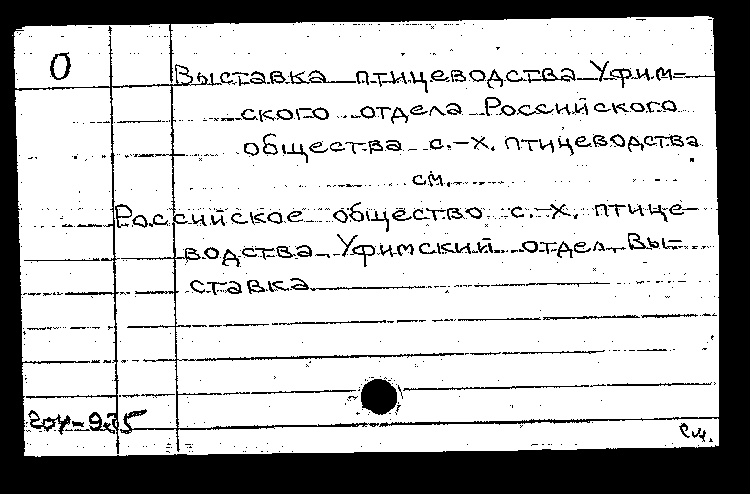 О
Выставка птицеводства Уфим-
ского отдела Российского
общества с.-х. птицеводства
см.
Российское общество с.-х. птице-
водства. Уфимский отдел. Вы-
ставка
см.